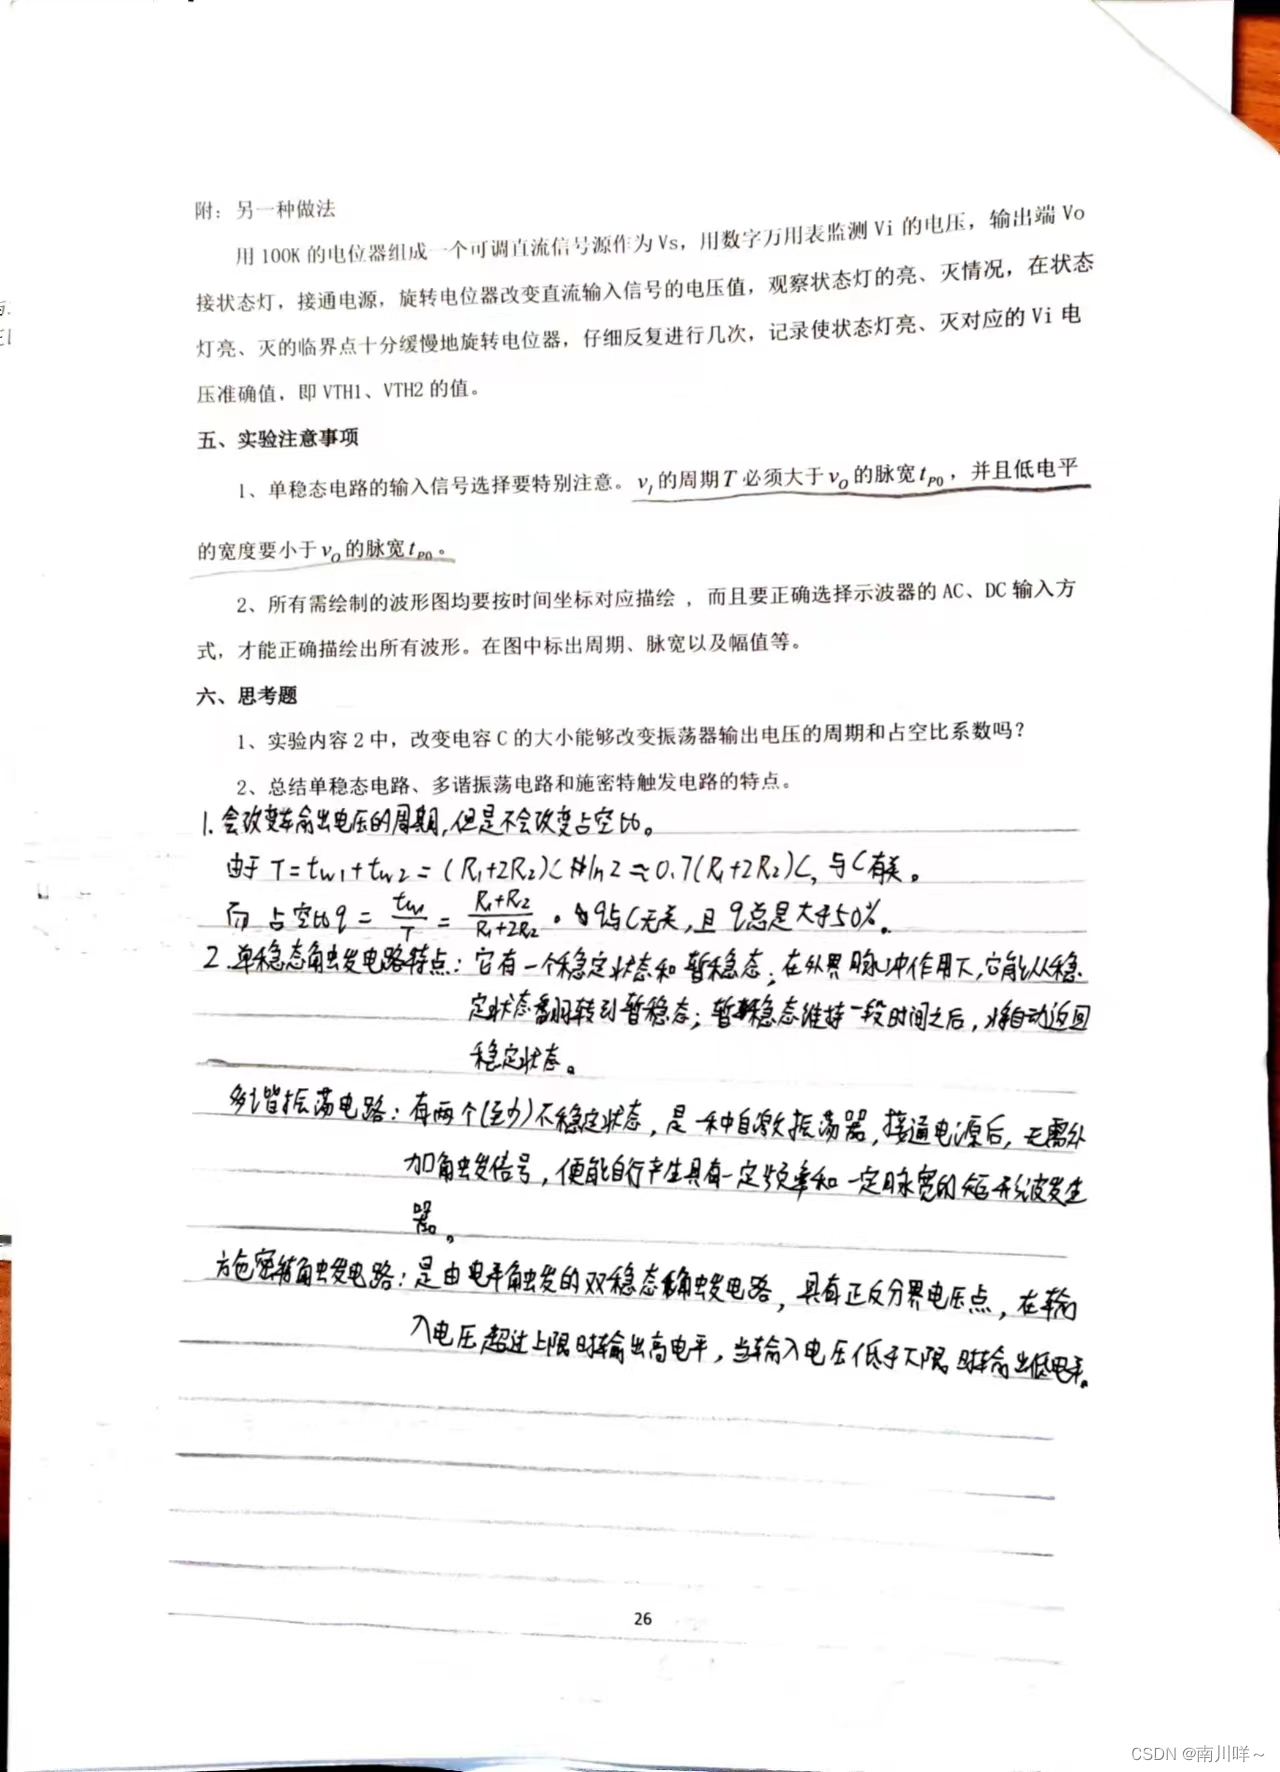 附：另一种做法
用 100K 的电位器组成一个可调直流信号源作为 Vs，用数字万用表监测 Vi 的电压，输出端 Vo
接状态灯，接通电源，旋转电位器改变直流输入信号的电压值，观察状态灯的亮、灭情况，在状态
灯亮、灭的临界点十分缓慢地旋转电位器，仔细反复进行几次，记录使状态灯亮、灭对应的 Vi 电
压准确值，即 VTH1、VTH2 的值。
五、实验注意事项
1、单稳态电路的输入信号选择要特别注意。v_I 的周期 T 必须大于 v_O 的脉宽 t_PO，并且低电平
的宽度要小于 v_O 的脉宽 t_PO。
2、所有需绘制的波形图均要按时间坐标对应描绘，而且要正确选择示波器的 AC、DC 输入方
式，才能正确描绘出所有波形。在图中标出周期、脉宽以及幅值等。
六、思考题
1、实验内容 2 中，改变电容 C 的大小能够改变振荡器输出电压的周期和占空比系数吗？
2、总结单稳态电路、多谐振荡电路和施密特触发电路的特点。
1. 会改变输出电压的周期，但是不会改变占空比。
由于 T=tw1+tw2=(R1+2R2)C ln2≈0.7(R1+2R2)C, 与C有关。
而 占空比q = tw1/T = (R1+R2)/(R1+2R2)。q与C无关，且 q总是大于50%。
2. 单稳态触发电路特点：它有一个稳定状态和暂稳态；在外界脉冲作用下，它能从稳
定状态翻转到暂稳态；暂稳态维持一段时间之后，将自动返回
稳定状态。
多谐振荡电路：有两个(至少)不稳定状态，是一种自激振荡器，接通电源后，无需外
加触发信号，便能自行产生具有一定频率和一定脉宽的矩形波发生
器。
施密特触发电路：是由电平触发的双稳态触发电路，具有正反分界电压点，在输
入电压超过上限时输出高电平，当输入电压低于下限时输出低电平。
26
CSDN @南川咩～